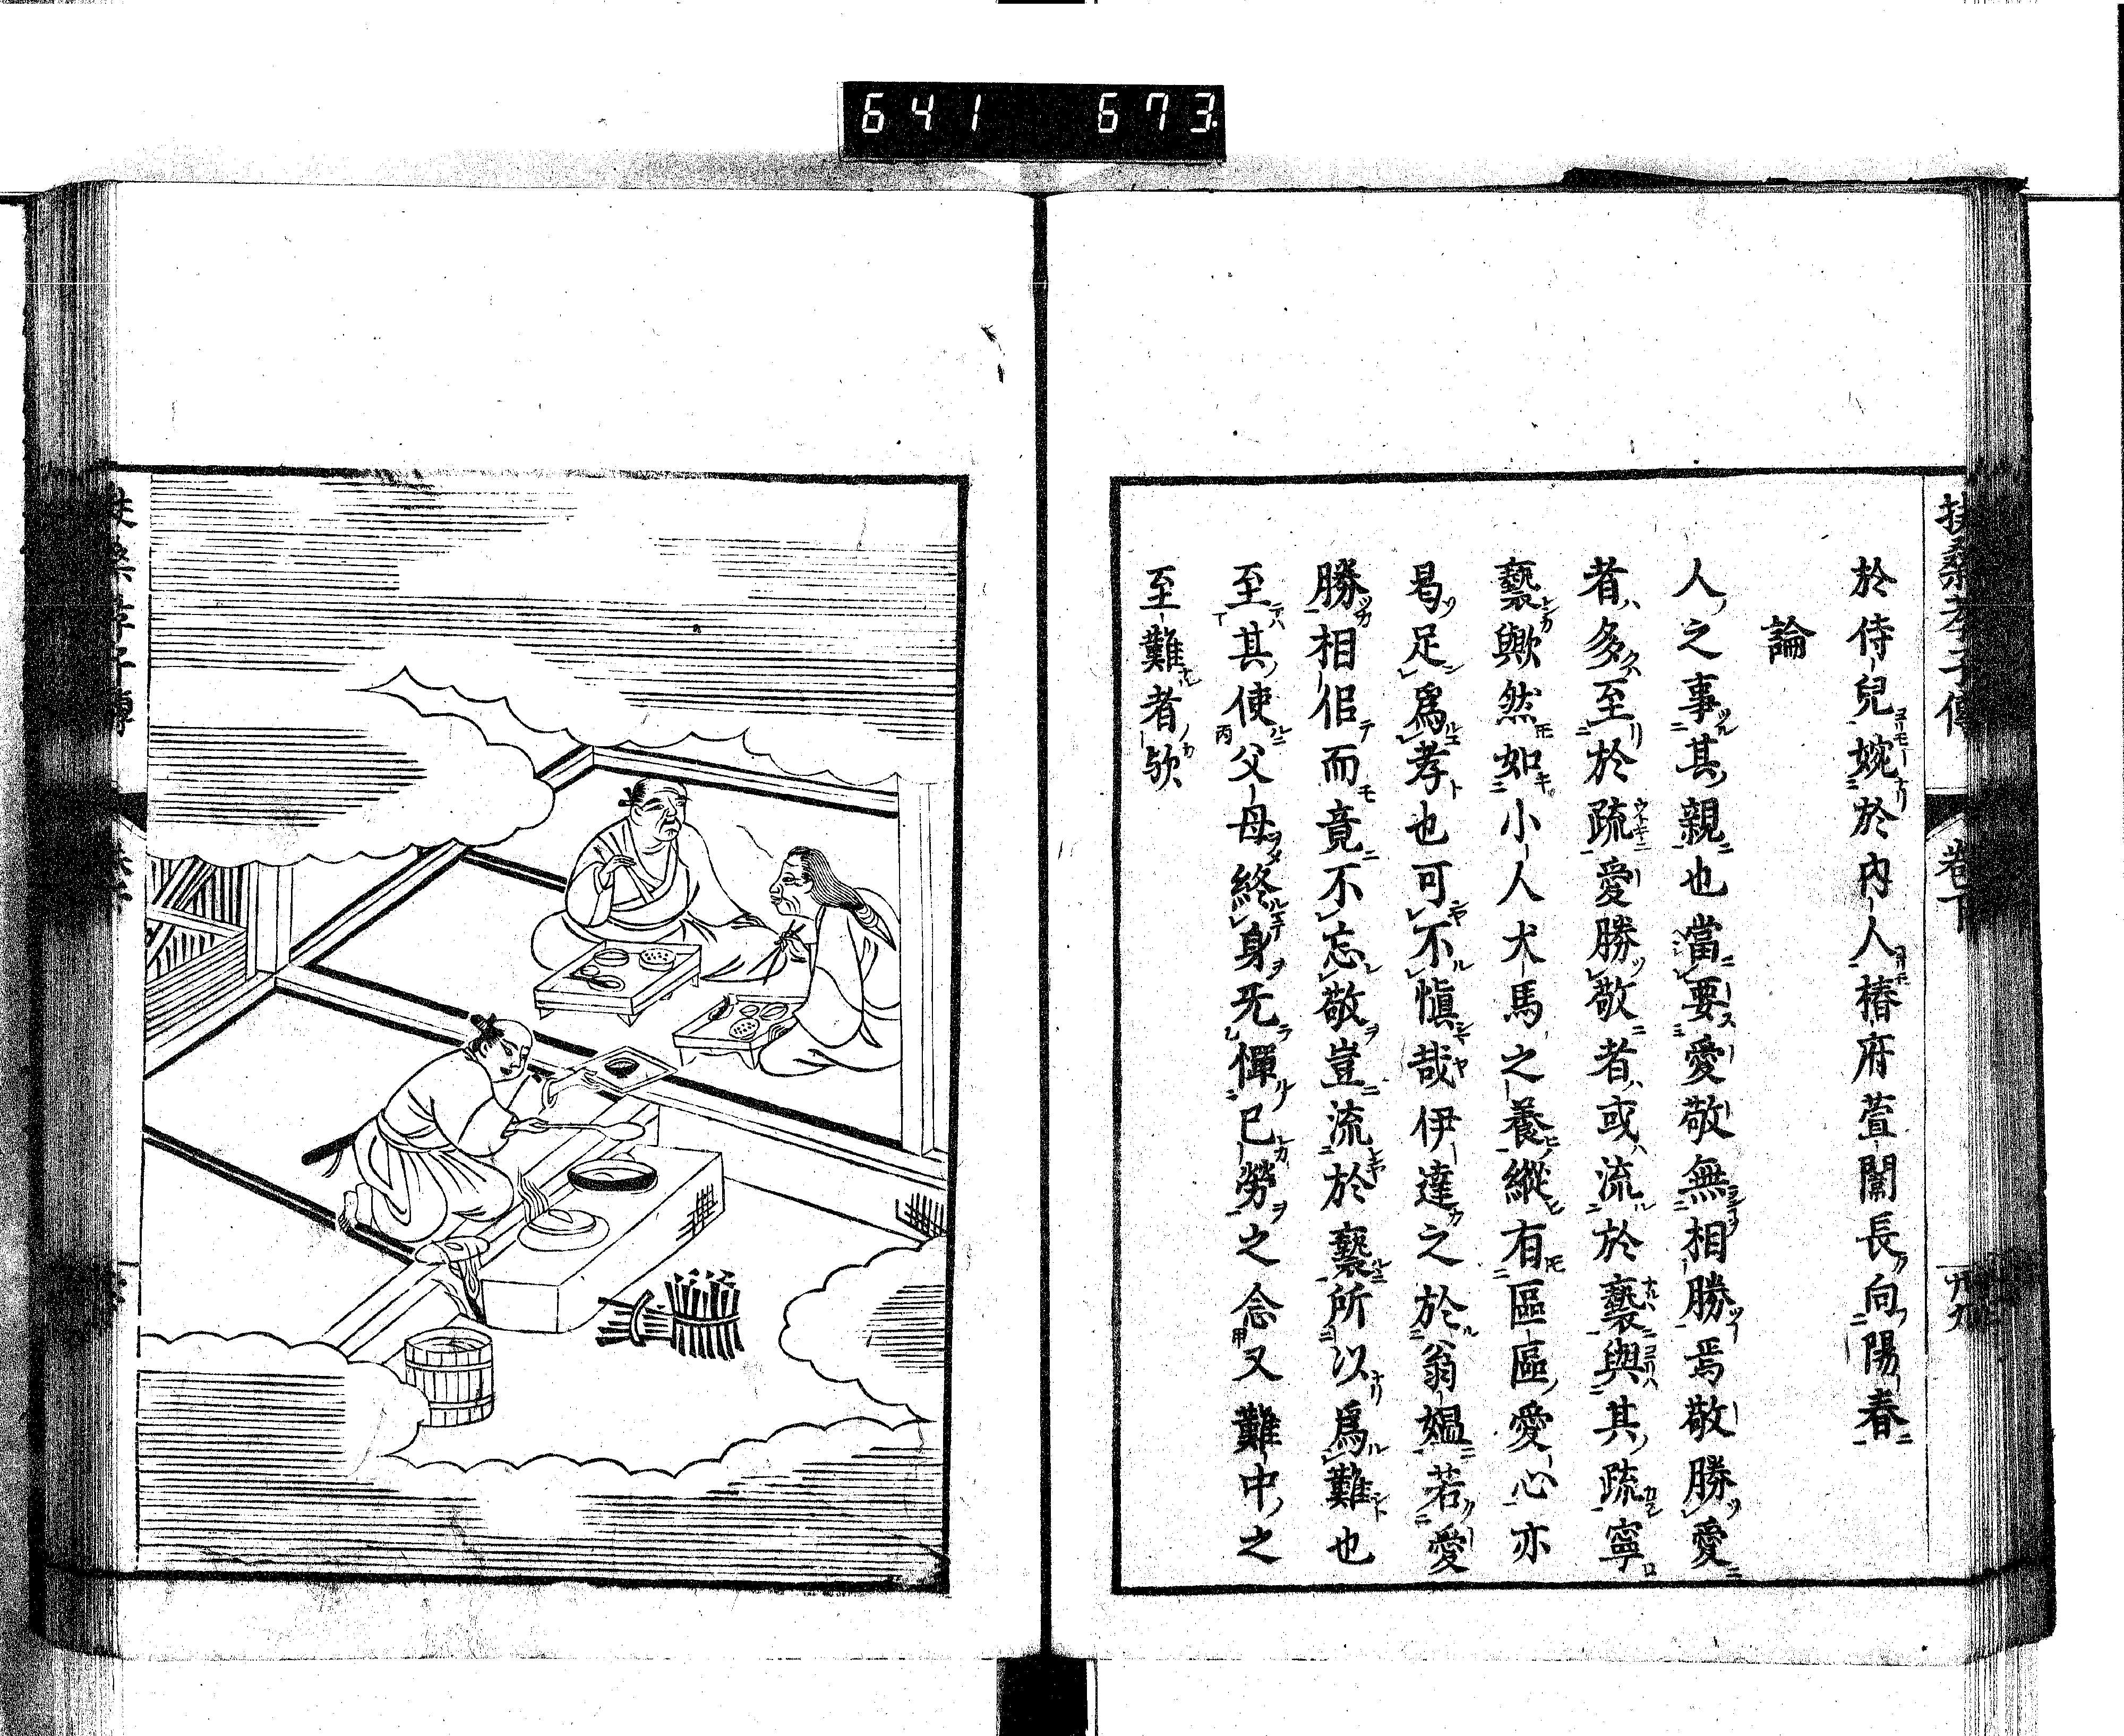 641 673
扶桑孝子傳 卷下
於侍兒婉於內人椿府萱闈長向陽春
論
人之事其親也當要愛敬無相勝焉敬勝愛
者多至於疏愛勝敬者或流於褻與其疏寧
褻歟然如小人犬馬之養縱有區區愛心亦
曷足爲孝也可不愼哉伊達之於翁媼若愛
勝相佀而竟不忘敬豈流於褻所以爲難也
至其使父母終身旡憚已勞之念又難中之
至難者歟
扶桑孝子傳